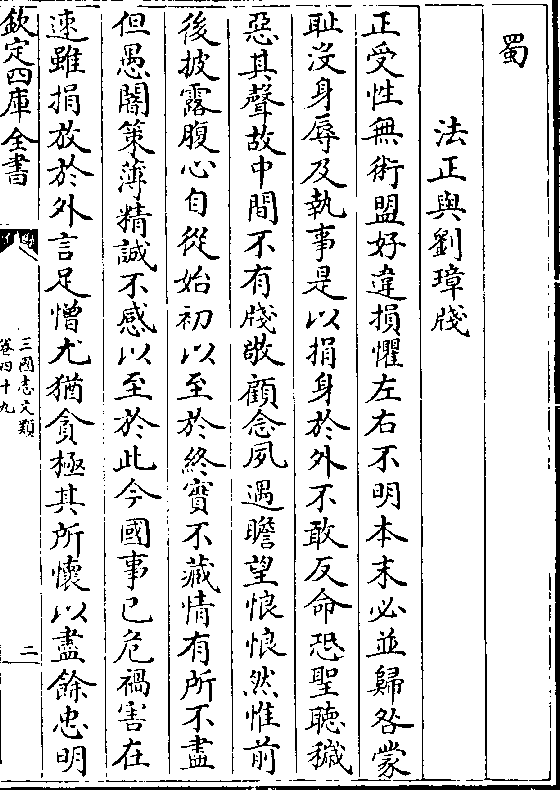 蜀
法正與劉璋牋
正受性無術盟好違損懼左右不明本末必並歸咎蒙
耻没身辱及執事是以捐身於外不敢反命恐聖聽穢
惡其聲故中間不有牋敬顧念夙遇瞻望悢悢然惟前
後披露腹心自從始初以至於終實不藏情有所不盡
但愚闇策薄精誠不感以至於此今國事已危禍害在
速雖捐放於外言足憎尤猶貪極其所懷以盡餘忠明
欽定四庫全書
三國志文類
卷四十九
二